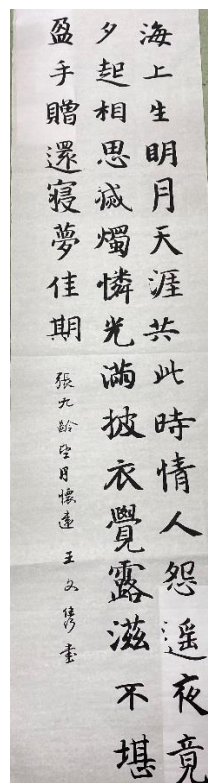 海上生明月天涯共此時情人怨遥夜竟
夕起相思滅燭憐光滿披衣覺露滋不堪
盈手贈還寢夢佳期
張九齡望月懷遠 王文儁書